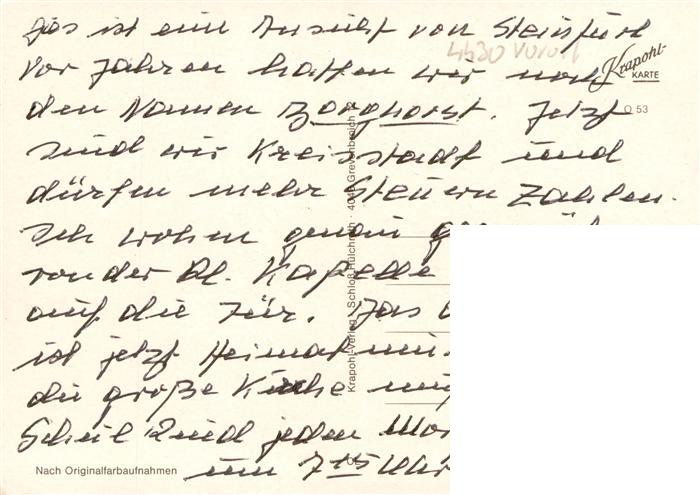 Das ist eine Ansicht von Steinfurt
4430
Vor Jahren hatten wir noch
Krapohl-
KARTE
den Namen Borghorst. Jetzt
O 53
sind wir Kreisstadt und
dürfen mehr Steuern zahlen.
Ich wohne genau
von der Kapelle
auf die Tür. Das
ist jetzt Heimatmus
die große Kirche
und jeden Mor
um 7 15 Uhr
Krapohl-Verlag · Schloß Hülchrath · 4048 Grevenbroich
Nach Originalfarbaufnahmen